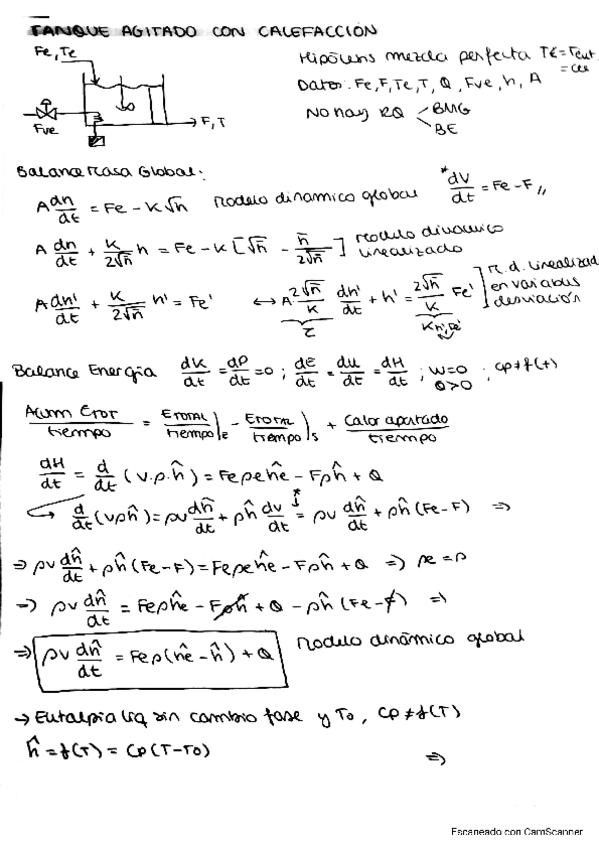 TANQUE AGITADO CON CALEFACCIÓN
Fe, Te
Fve
F, T
Hipótesis mezcla perfecta
Datos: Fe, F, Te, T, Q, Fve, h, A
No hay RQ < BMG
BE
Balance Masa Global:
A dh/dt = Fe - K√h Modelo dinamico global *dV/dt = Fe - F //
A dh/dt + K/(2√h̄) h = Fe - K [√h̄ - h̄/(2√h̄)] modelo dinamico linealizado
A dh'/dt + K/(2√h̄) h' = Fe' ↔ A 2√h̄/K dh'/dt + h' = 2√h̄/K Fe' ] M.d. linealizad en variables desviación
τ K h',Fe'
Balance Energía dK/dt = dP/dt = 0 ; dE/dt = dU/dt = dH/dt ; W=0 Q>0 ; Cp ≠ f(t)
Acum Etot/tiempo = Etotal/tiempo)e - Etotal/tiempo)s + Calor aportado/tiempo
dH/dt = d/dt (V.ρ.ĥ) = Fe ρe ĥe - F ρ ĥ + Q
↪ d/dt (Vρĥ) = ρV dĥ/dt + ρĥ dV/dt =* ρV dĥ/dt + ρĥ (Fe - F) ⇒
⇒ ρV dĥ/dt + ρĥ (Fe - F) = Fe ρe ĥe - Fρĥ + Q ⇒ ρe = ρ
⇒ ρV dĥ/dt = Fe ρ ĥe - Fρĥ + Q - ρĥ (Fe - F) ⇒
⇒ ρV dĥ/dt = Fe ρ (ĥe - ĥ) + Q Modelo dinámico global
→ Entalpia liq sin cambio fase y To, Cp ≠ f(T)
ĥ = f(T) = Cp (T - To) ⇒
Escaneado con CamScanner